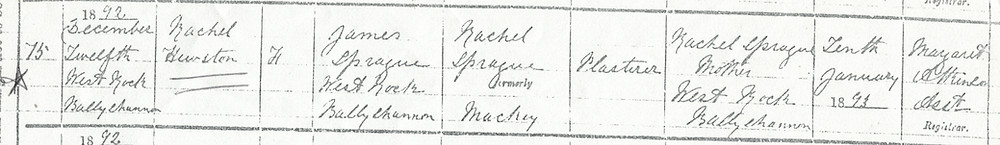 Registrar.
1892
December Rachel James Rachel Rachel Sprague Tenth Margaret
75 Twelfth Hewston H Sprague Sprague Plasterer Mother January
West Rock West Rock Formerly West Rock 1893 Asst
Ballyshannon Ballyshannon Mackey Ballyshannon Registrar.
1892